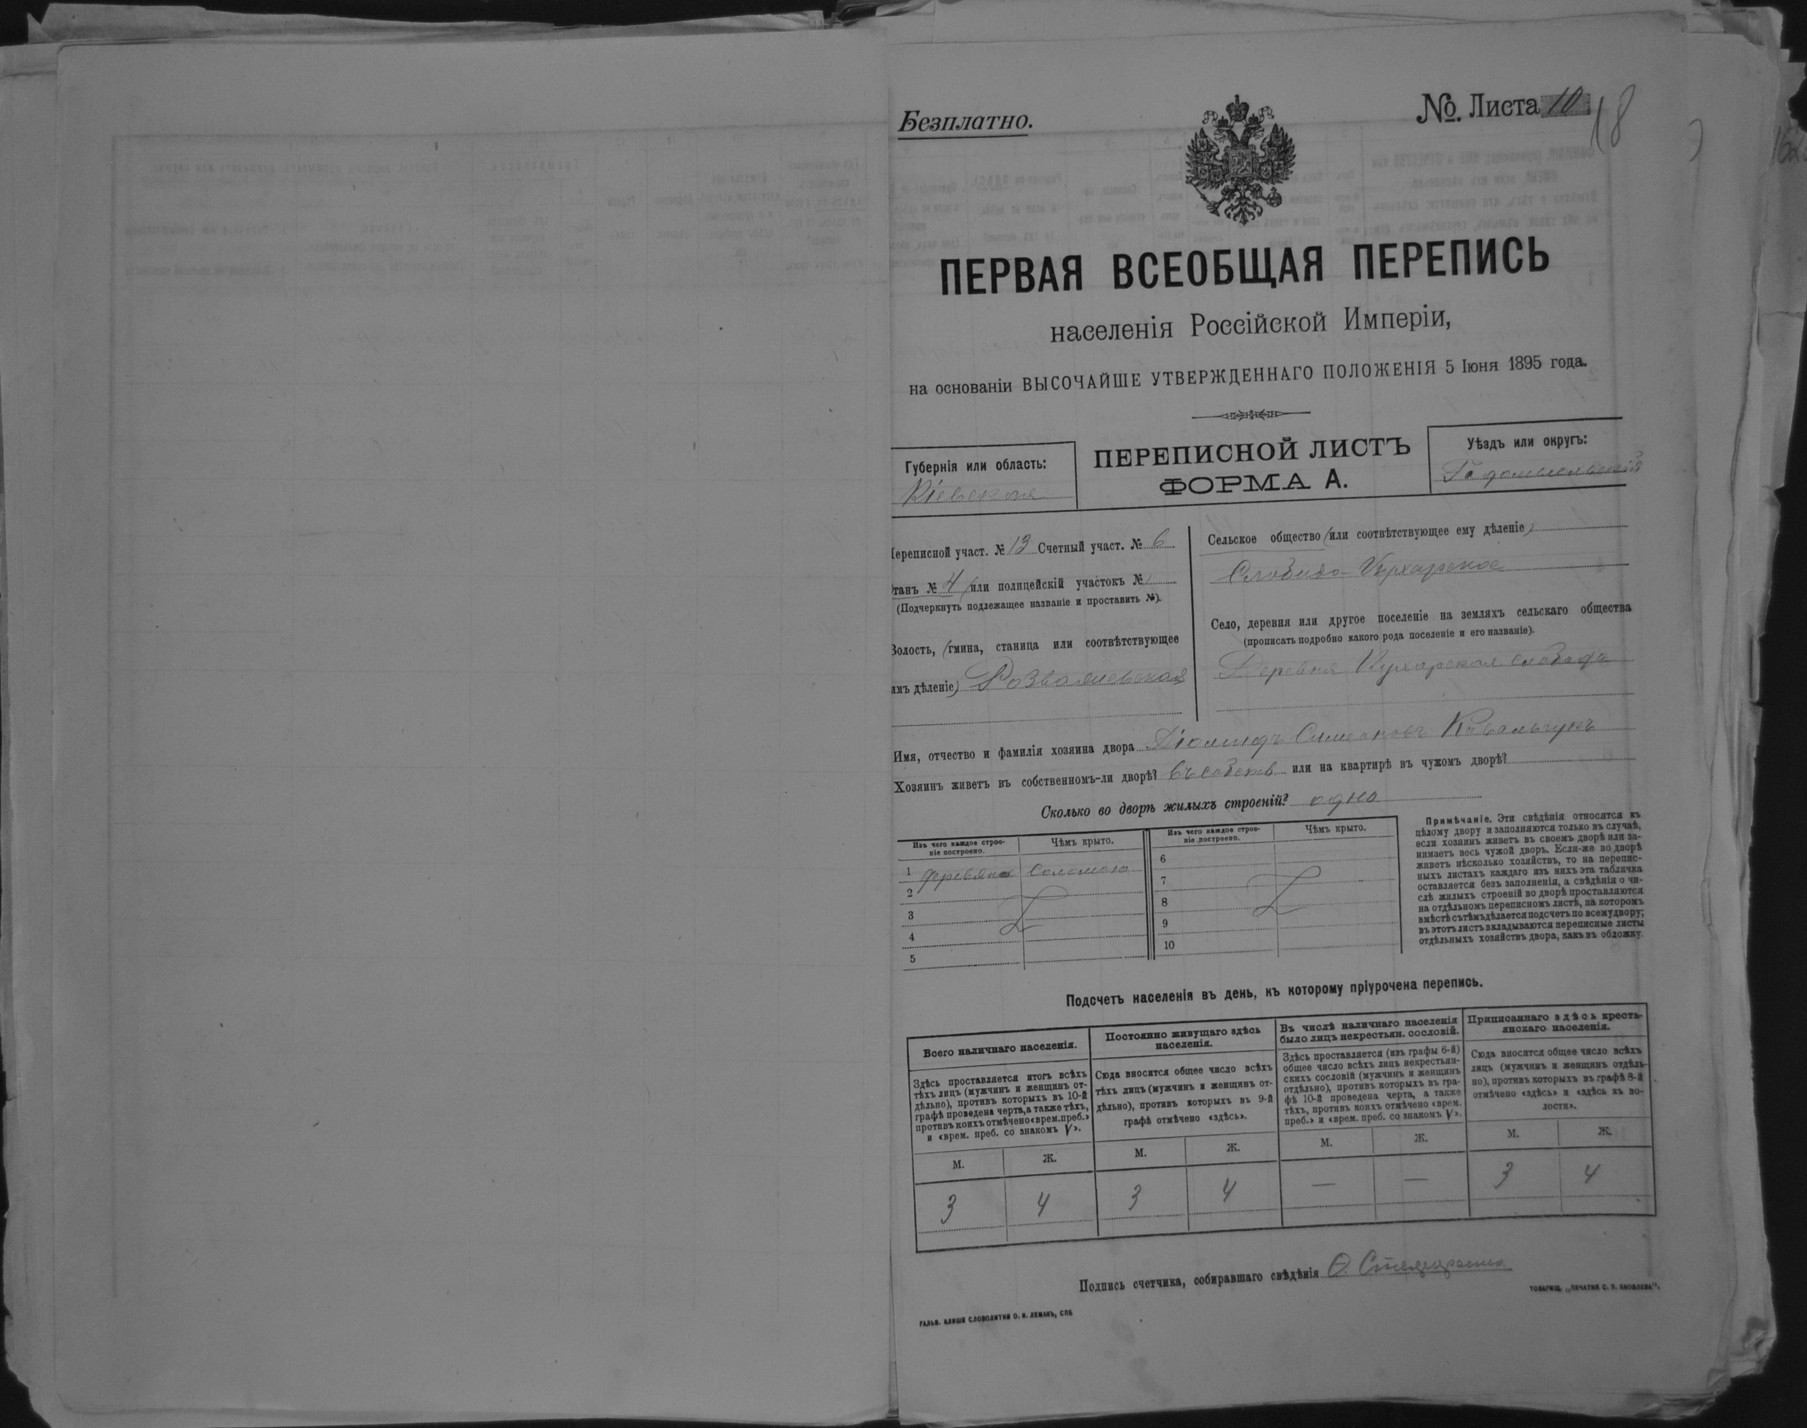 Безплатно.
№ Листа 10
18
ПЕРВАЯ ВСЕОБЩАЯ ПЕРЕПИСЬ
населенія Россійской Имперіи,
на основаніи ВЫСОЧАЙШЕ УТВЕРЖДЕННАГО ПОЛОЖЕНІЯ 5 Іюня 1895 года.
Губернія или область:
Кіевская
ПЕРЕПИСНОЙ ЛИСТЪ
ФОРМА А.
Уѣздъ или округъ:
ереписной участ. № 13 Счетный участ. № 6
танъ № 4 (или полицейскій участокъ №)
(Подчеркнуть подлежащее названіе и проставить №).
олость, (гмина, станица или соотвѣтствующее
имъ дѣленіе)
Сельское общество (или соотвѣтствующее ему дѣленіе)
Село, деревня или другое поселеніе на земляхъ сельскаго общества
(прописать подробно какого рода поселеніе и его названіе).
Деревня Кухарская слобода
Имя, отчество и фамилія хозяина двора Ковальчукъ
Хозяинъ живетъ въ собственномъ-ли дворѣ? или на квартирѣ въ чужомъ дворѣ?
Сколько во дворѣ жилыхъ строеній? одно
Изъ чего каждое строе-
ніе построено.
Чѣмъ крыто.
Изъ чего каждое строе-
ніе построено.
Чѣмъ крыто.
1 соломою
2
3
4
5
6
7
8
9
10
Примѣчаніе. Эти свѣдѣнія относятся къ
цѣлому двору и заполняются только въ случаѣ,
если хозяинъ живетъ въ своемъ дворѣ или за-
нимаетъ весь чужой дворъ. Если-же во дворѣ
живетъ нѣсколько хозяйствъ, то на перепис-
ныхъ листахъ каждаго изъ нихъ эта табличка
оставляется безъ заполненія, а свѣдѣнія о чи-
слѣ жилыхъ строеній во дворѣ проставляются
на отдѣльномъ переписномъ листѣ, на которомъ
вмѣстѣ съ тѣмъ дѣлается подсчетъ по всему двору;
въ этотъ листъ вкладываются переписные листы
отдѣльныхъ хозяйствъ двора, какъ въ обложку.
Подсчетъ населенія въ день, къ которому пріурочена перепись.
Всего наличнаго населенія.
Здѣсь проставляется итогъ всѣхъ
тѣхъ лицъ (мужчинъ и женщинъ от-
дѣльно), противъ которыхъ въ 10-й
графѣ проведена черта, а также тѣхъ,
противъ коихъ отмѣчено «врем. преб.»
и «врем. преб. со знакомъ V».
Постоянно живущаго здѣсь
населенія.
Сюда вносится общее число всѣхъ
тѣхъ лицъ (мужчинъ и женщинъ от-
дѣльно), противъ которыхъ въ 9-й
графѣ отмѣчено «здѣсь».
Въ числѣ наличнаго населенія
было лицъ некрестьян. сословій.
Здѣсь проставляется (изъ графы 6-й)
общее число всѣхъ лицъ некрестьян-
скихъ сословій (мужчинъ и женщинъ
отдѣльно), противъ которыхъ въ гра-
фѣ 10-й проведена черта, а также
тѣхъ, противъ коихъ отмѣчено «врем.
преб.» и «врем. преб. со знакомъ V».
Приписаннаго здѣсь кресть-
янскаго населенія.
Сюда вносится общее число всѣхъ
лицъ (мужчинъ и женщинъ отдѣль-
но), противъ которыхъ въ графѣ 8-й
отмѣчено «здѣсь» и «здѣсь къ во-
лости».
М. Ж. М. Ж. М. Ж. М. Ж.
3 4 3 4 — — 3 4
Подпись счетчика, собиравшаго свѣдѣнія
ГАЛЬВ. КЛИШЕ СЛОВОЛИТНИ О. И. ЛЕМАНЪ, СПБ
ТОВАРИЩ. „ПЕЧАТНЯ С. П. ЯКОВЛЕВА".